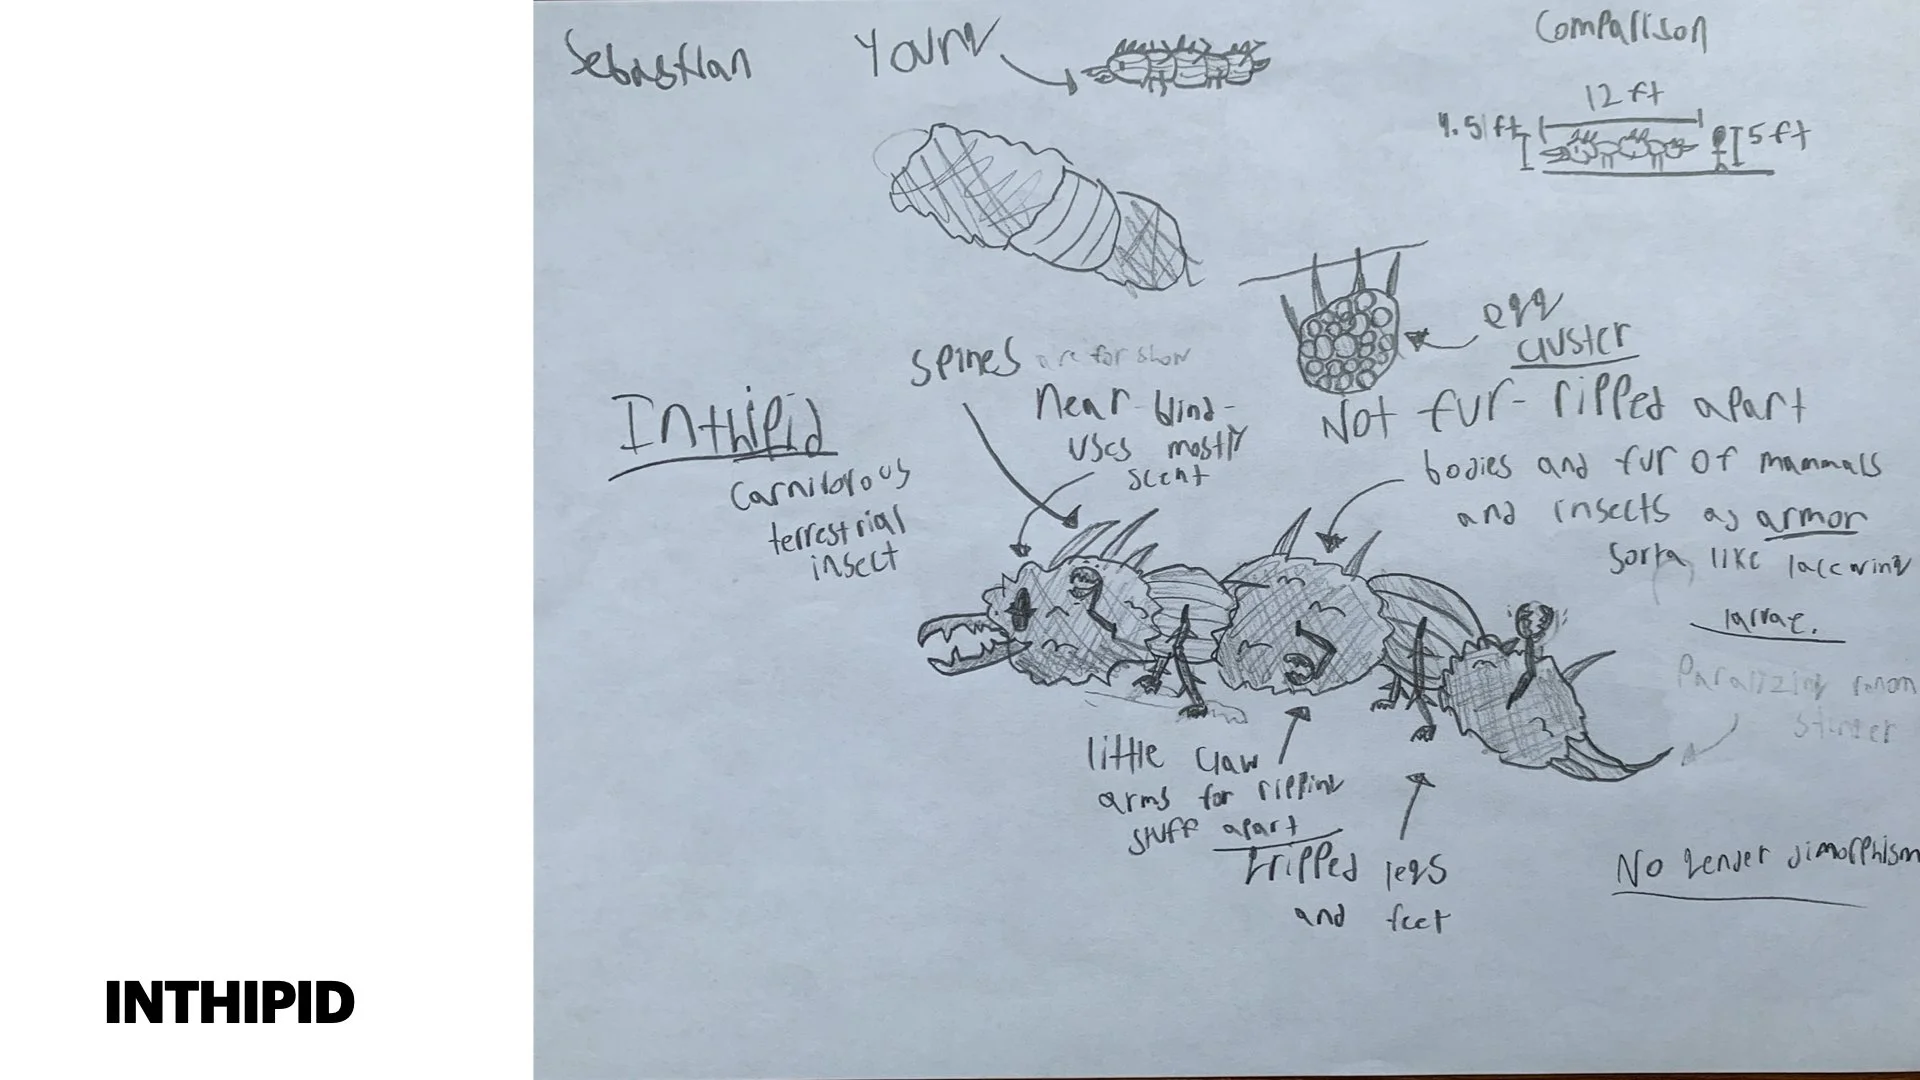 Sebastian
Young
Comparison
12 ft
4.5 ft
5 ft
egg
cluster
Spines are for show
Near blind-
uses mostly
scent
Inthipid
Carnivorous
terrestrial
insect
Not fur- ripped apart
bodies and fur of mammals
and insects as armor
sorta like lacewing
larvae.
Paralizing venom
stinger
little claw
arms for ripping
stuff apart
tripped legs
and feet
No gender dimorphism
INTHIPID